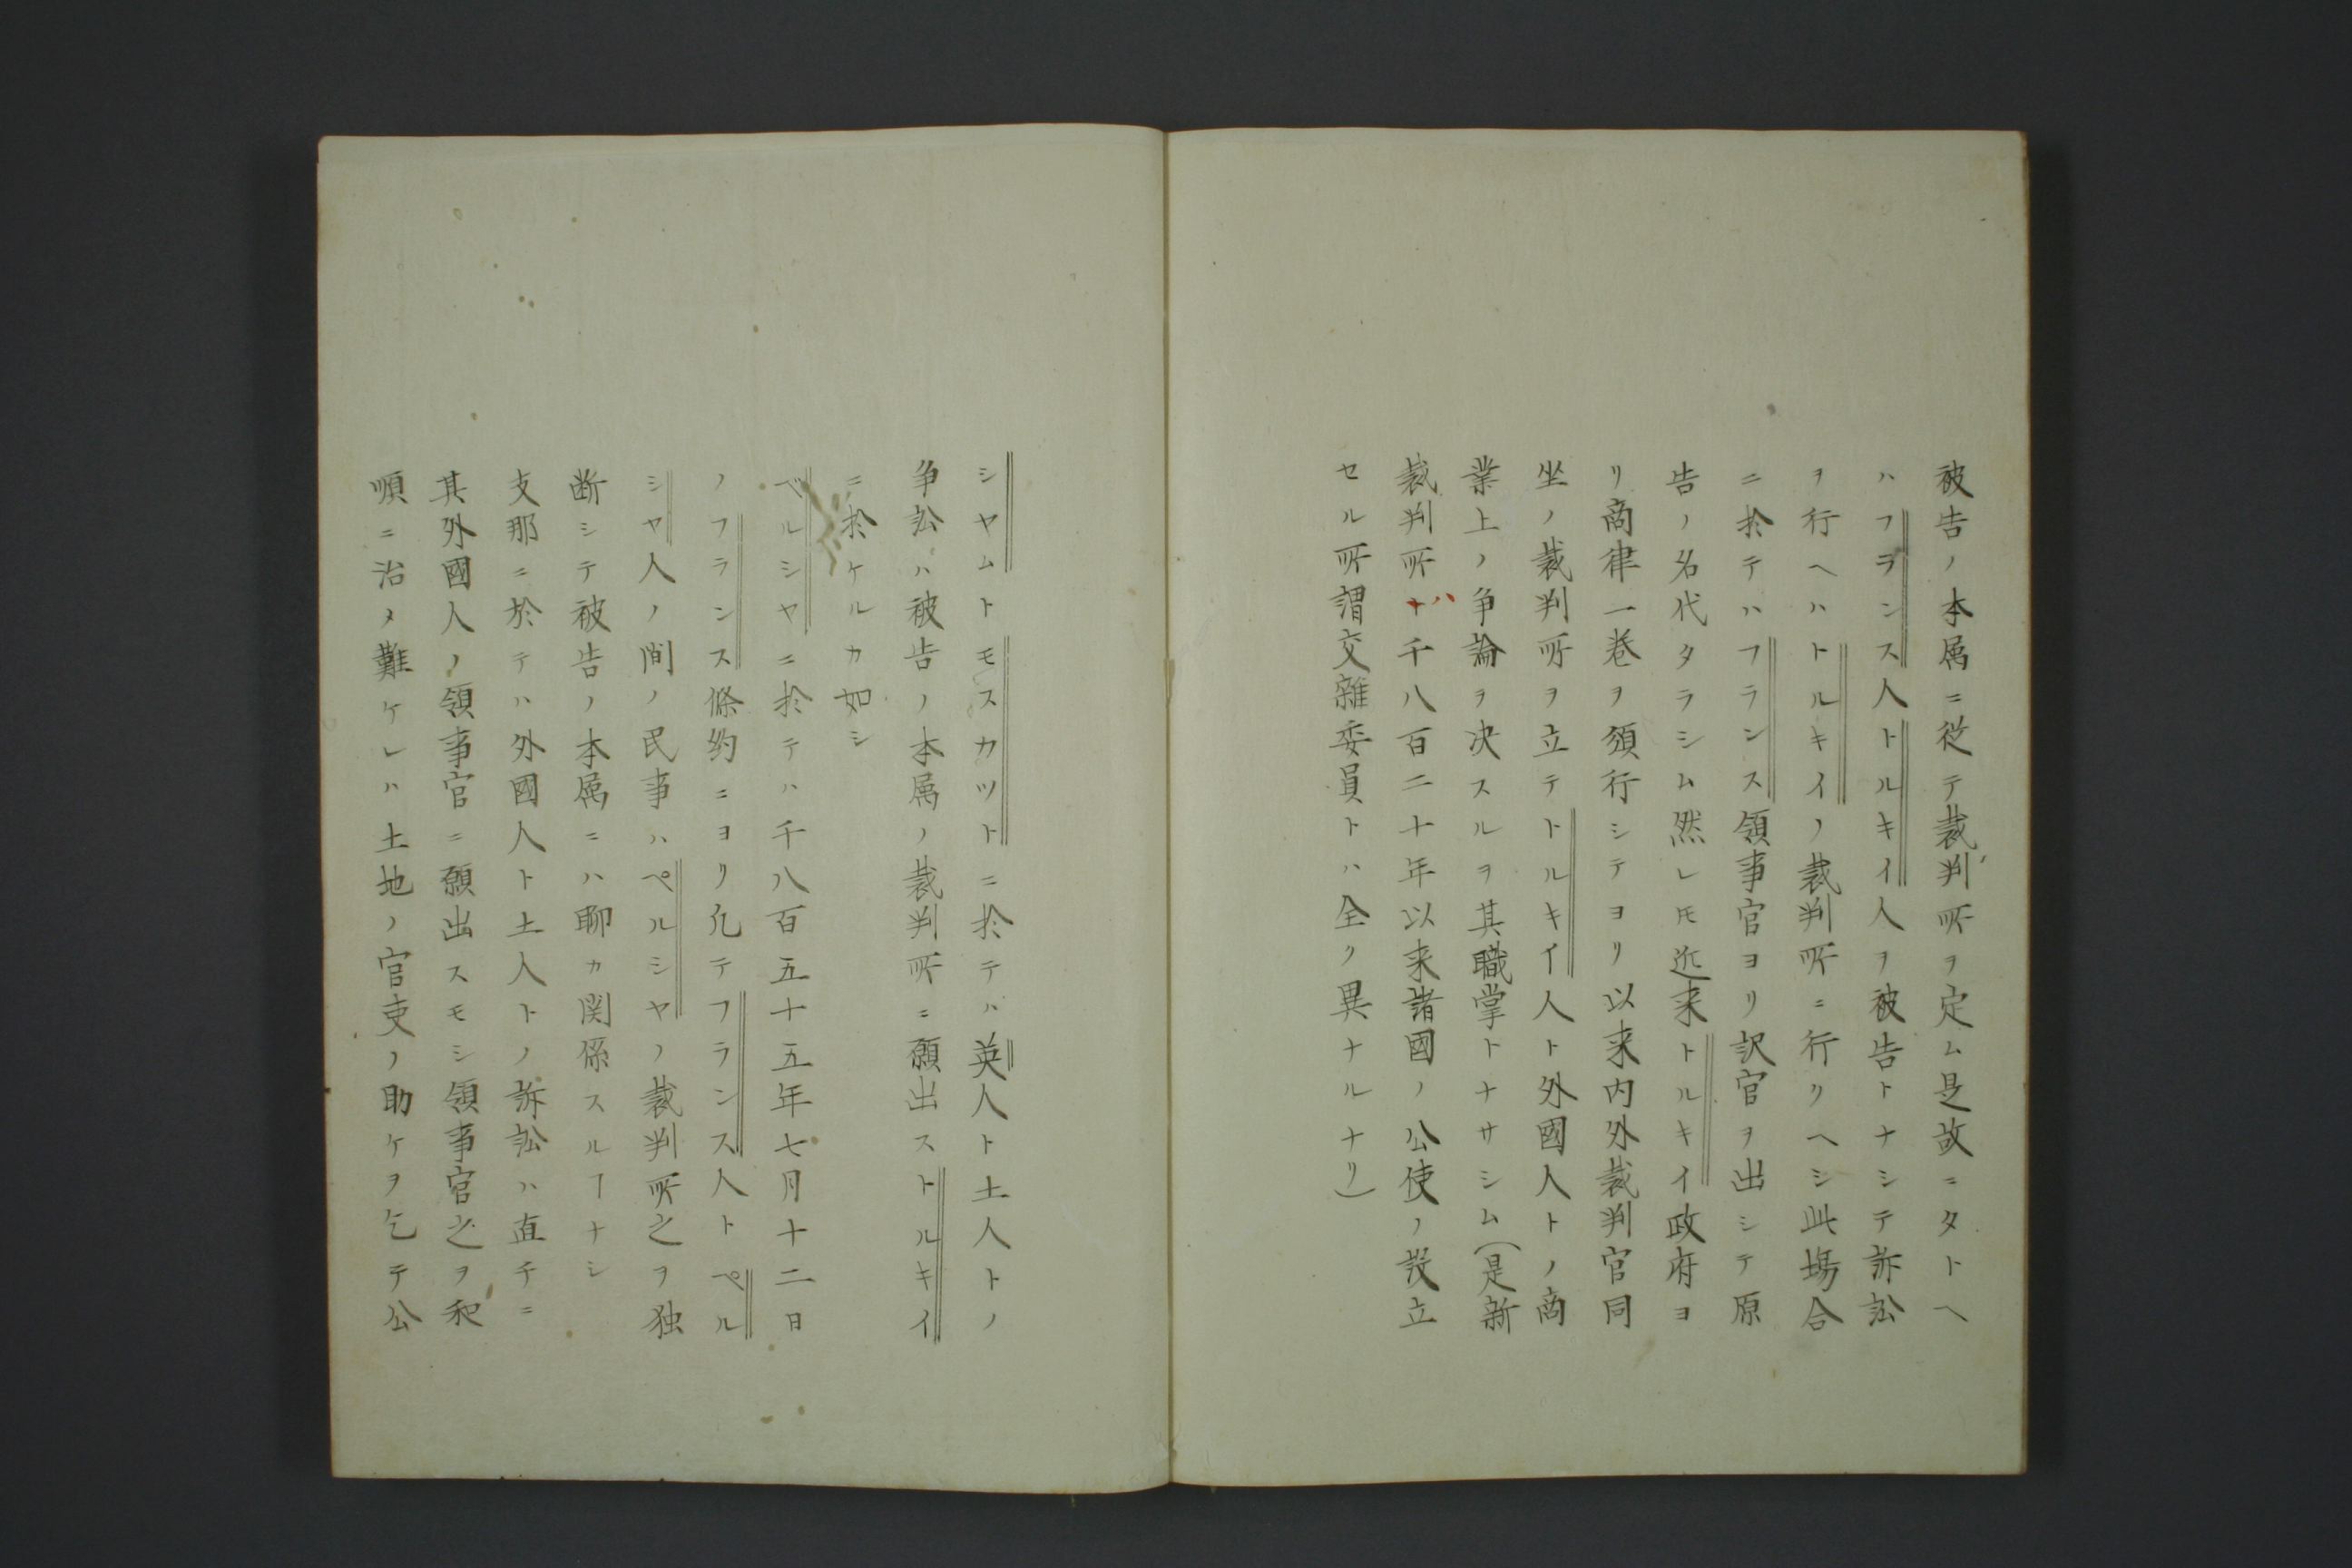 被告ノ本属ニ従テ裁判所ヲ定ム是故ニタトヘ
ハフランス人トルキイ人ヲ被告トナシテ訴訟
ヲ行ヘハトルキイノ裁判所ニ行クヘシ此場合
ニ於テハフランス領事官ヨリ訳官ヲ出シテ原
告ノ名代タラシム然レ𪜈近来トルキイ政府ヨ
リ商律一巻ヲ頒行シテヨリ以来内外裁判官同
坐ノ裁判所ヲ立テトルキイ人ト外國人トノ商
業上ノ争論ヲ决スルヲ其職掌トナサシム(是新
裁判所ハ千八百二十年以来諸國ノ公使ノ設立
セル所謂交雑委員トハ全ク異ナルナリ)
シヤムトモスカツトニ於テハ英人ト土人トノ
争訟ハ被告ノ本属ノ裁判所ニ願出ストルキイ
ニ於ケルカ如シ
ペルシヤニ於テハ千八百五十五年七月十二日
ノフランス條約ニヨリ凢テフランス人トペル
シヤ人ノ間ノ民事ハペルシヤノ裁判所之ヲ独
断シテ被告ノ本属ニハ聊カ関係スルヿナシ
支那ニ於テハ外國人ト土人トノ訴訟ハ直チニ
其外國人ノ領事官ニ願出スモシ領事官之ヲ和
順ニ治メ難ケレハ土地ノ官吏ノ助ケヲ乞テ公